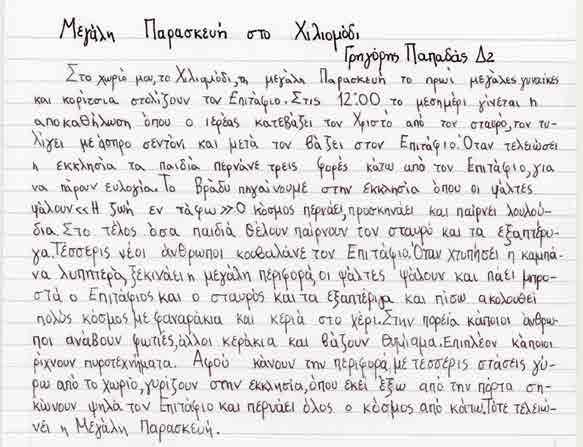 Μεγάλη Παρασκευή στο Χιλιομόδι
Γρηγόρης Παπαδάς Δ2
Στο χωριό μου, το Χιλιομόδι, τη μεγάλη Παρασκευή το πρωί μεγάλες γυναίκες
και κορίτσια στολίζουν τον Επιτάφιο. Στις 12:00 το μεσημέρι γίνεται η
αποκαθήλωση όπου ο ιερέας κατεβάζει τον Χριστό από τον σταυρό, τον τυ-
λίγει με άσπρο σεντόνι και μετά τον βάζει στον Επιτάφιο. Όταν τελειώσει
η εκκλησία τα παιδιά περνάνε τρεις φορές κάτω από τον Επιτάφιο, για
να πάρουν ευλογία. Το βράδυ πηγαίνουμε στην εκκλησία όπου οι ψάλτες
ψάλουν <<Η ζωή εν τάφω>> Ο κόσμος περνάει, προσκηνάει και παίρνει λουλού-
δια. Στο τέλος όσα παιδιά θέλουν παίρνουν τον σταυρό και τα εξαπτέρυ-
γα. Τέσσερις νέοι άνθρωποι κουβαλάνε τον Επιτάφιο. Όταν χτυπήσει η καμπά-
να λυπητερά, ξεκινάει η μεγάλη περιφορά, οι ψάλτες ψάλουν και πάει μπρο-
στά ο Επιτάφιος και ο σταυρός και τα εξαπτέριγα και πίσω ακολουθεί
πολύς κόσμος με φαναράκια και κεριά στο χέρι. Στην πορεία κάποιοι άνθρω-
ποι ανάβουν φωτιές, άλλοι κεράκια και βάζουν θυμίαμα. Επιπλέον κάποιοι
ρίχνουν πυροτεχνήματα. Αφού κάνουν την περιφορά, με τέσσερις στάσεις γύ-
ρω από το χωριό, γυρίζουν στην εκκλησία, όπου εκεί έξω από την πόρτα ση-
κώνουν ψηλά τον Επιτάφιο και περνάει όλος ο κόσμος από κάτω. Τότε τελειώ-
νει η Μεγάλη Παρασκευή.